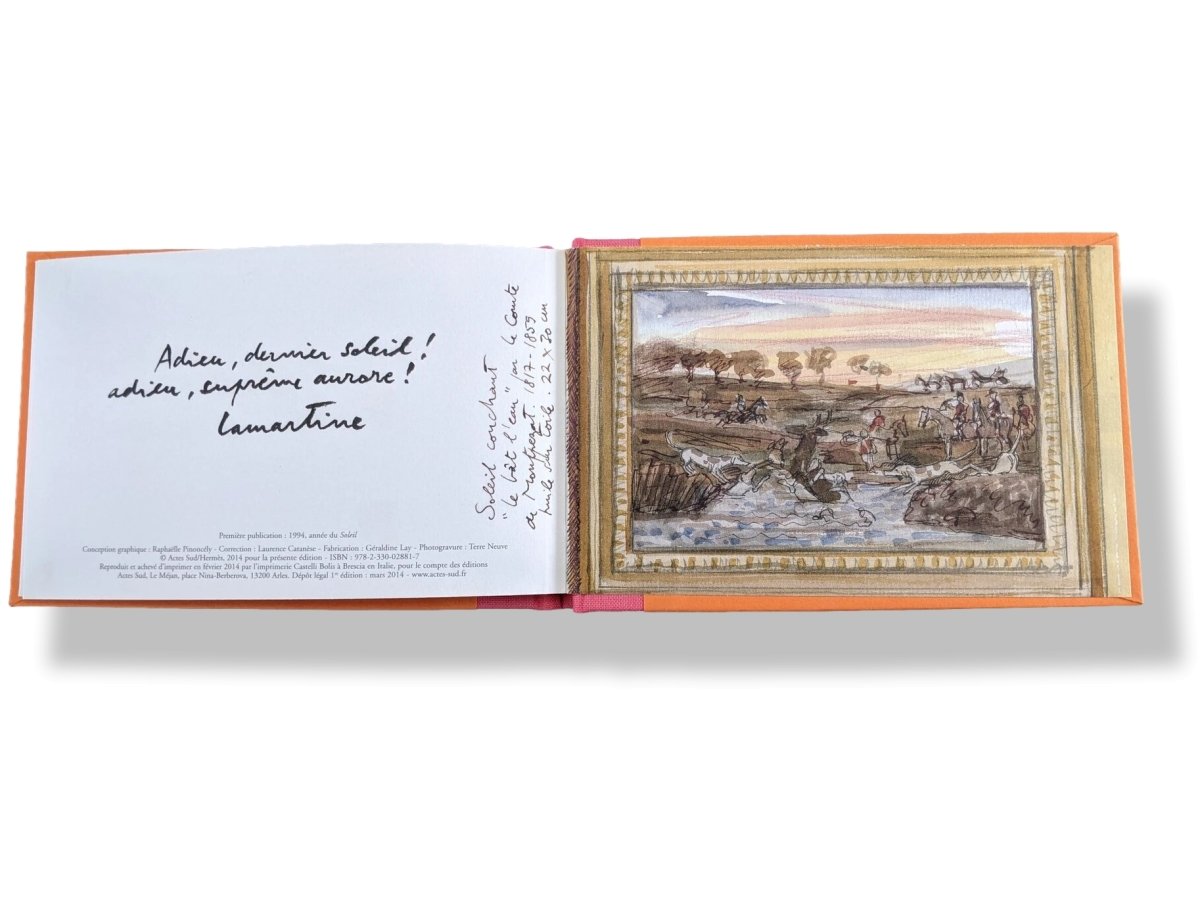 Adieu, dernier soleil!
adieu, suprême aurore!
Lamartine
Soleil couchant
"le bât l'eau" par le Comte
de Montpezat. 1817-1859
huile sur toile. 22 x 30 cm
Première publication : 1994, année du Soleil
Conception graphique : Raphaëlle Pinoncély - Correction : Laurence Catanèse - Fabrication : Géraldine Lay - Photogravure : Terre Neuve
© Actes Sud/Hermès, 2014 pour la présente édition - ISBN : 978-2-330-02881-7
Reproduit et achevé d'imprimer en février 2014 par l'imprimerie Castelli Bolis à Brescia en Italie, pour le compte des éditions
Actes Sud, Le Méjan, place Nina-Berberova, 13200 Arles. Dépôt légal 1re édition : mars 2014 - www.actes-sud.fr